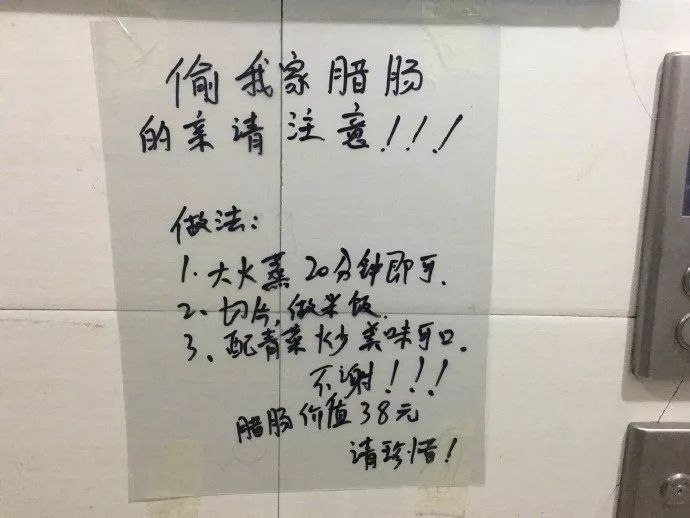 偷我家腊肠
的亲请注意!!!
做法:
1. 大火蒸20分钟即可.
2、切片,做米饭.
3、配青菜炒美味可口.
不谢!!!
腊肠价值38元
请珍惜!